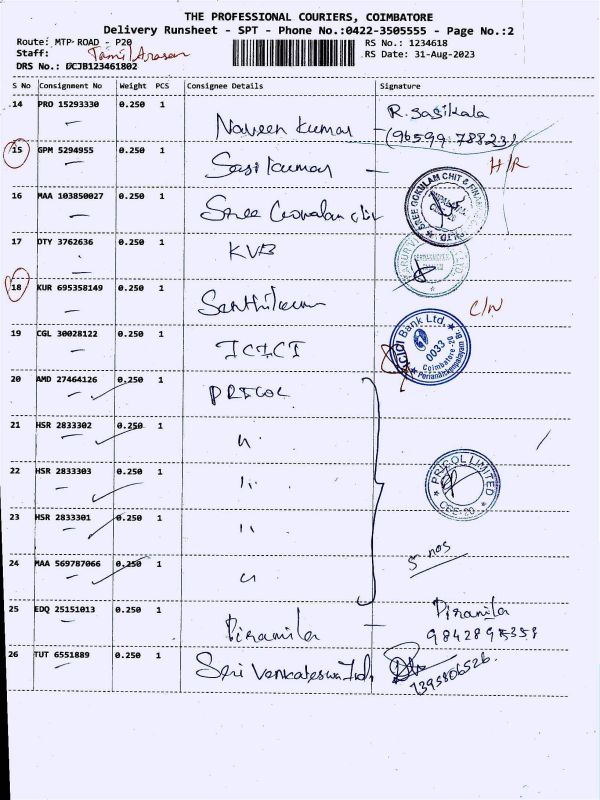 THE PROFESSIONAL COURIERS, COIMBATORE
Delivery Runsheet - SPT - Phone No.:0422-3505555 - Page No.:2
Route: MTP ROAD - P20
RS No.: 1234618
Staff: Tamil Arasan
RS Date: 31-Aug-2023
DRS No.: DCJB123461802
S No Consignment No Weight PCS Consignee Details Signature
14 PRO 15293330 0.250 1 Naveen Kumar R. Sasikala
15 GPM 5294955 0.250 1 Sasikumar H/R
16 MAA 103850027 0.250 1 Sree SREE GOKULAM CHIT & FINANCE
17 DTY 3762636 0.250 1 KVB
18 KUR 695358149 0.250 1 Senthilkumar C/N
19 CGL 30028122 0.250 1 ICICI ICICI Bank Ltd. 0033 Coimbatore Perianaickenpalayam
20 AMD 27464126 0.250 1 PRICOL
21 HSR 2833302 0.250 1 "
22 HSR 2833303 0.250 1 " PRICOL LIMITED CBE-20
23 HSR 2833301 0.250 1 "
24 MAA 569787066 0.250 1 " 5 nos
25 EDQ 25151013 0.250 1 Piramila Piramila
26 TUT 6551889 0.250 1 Sri